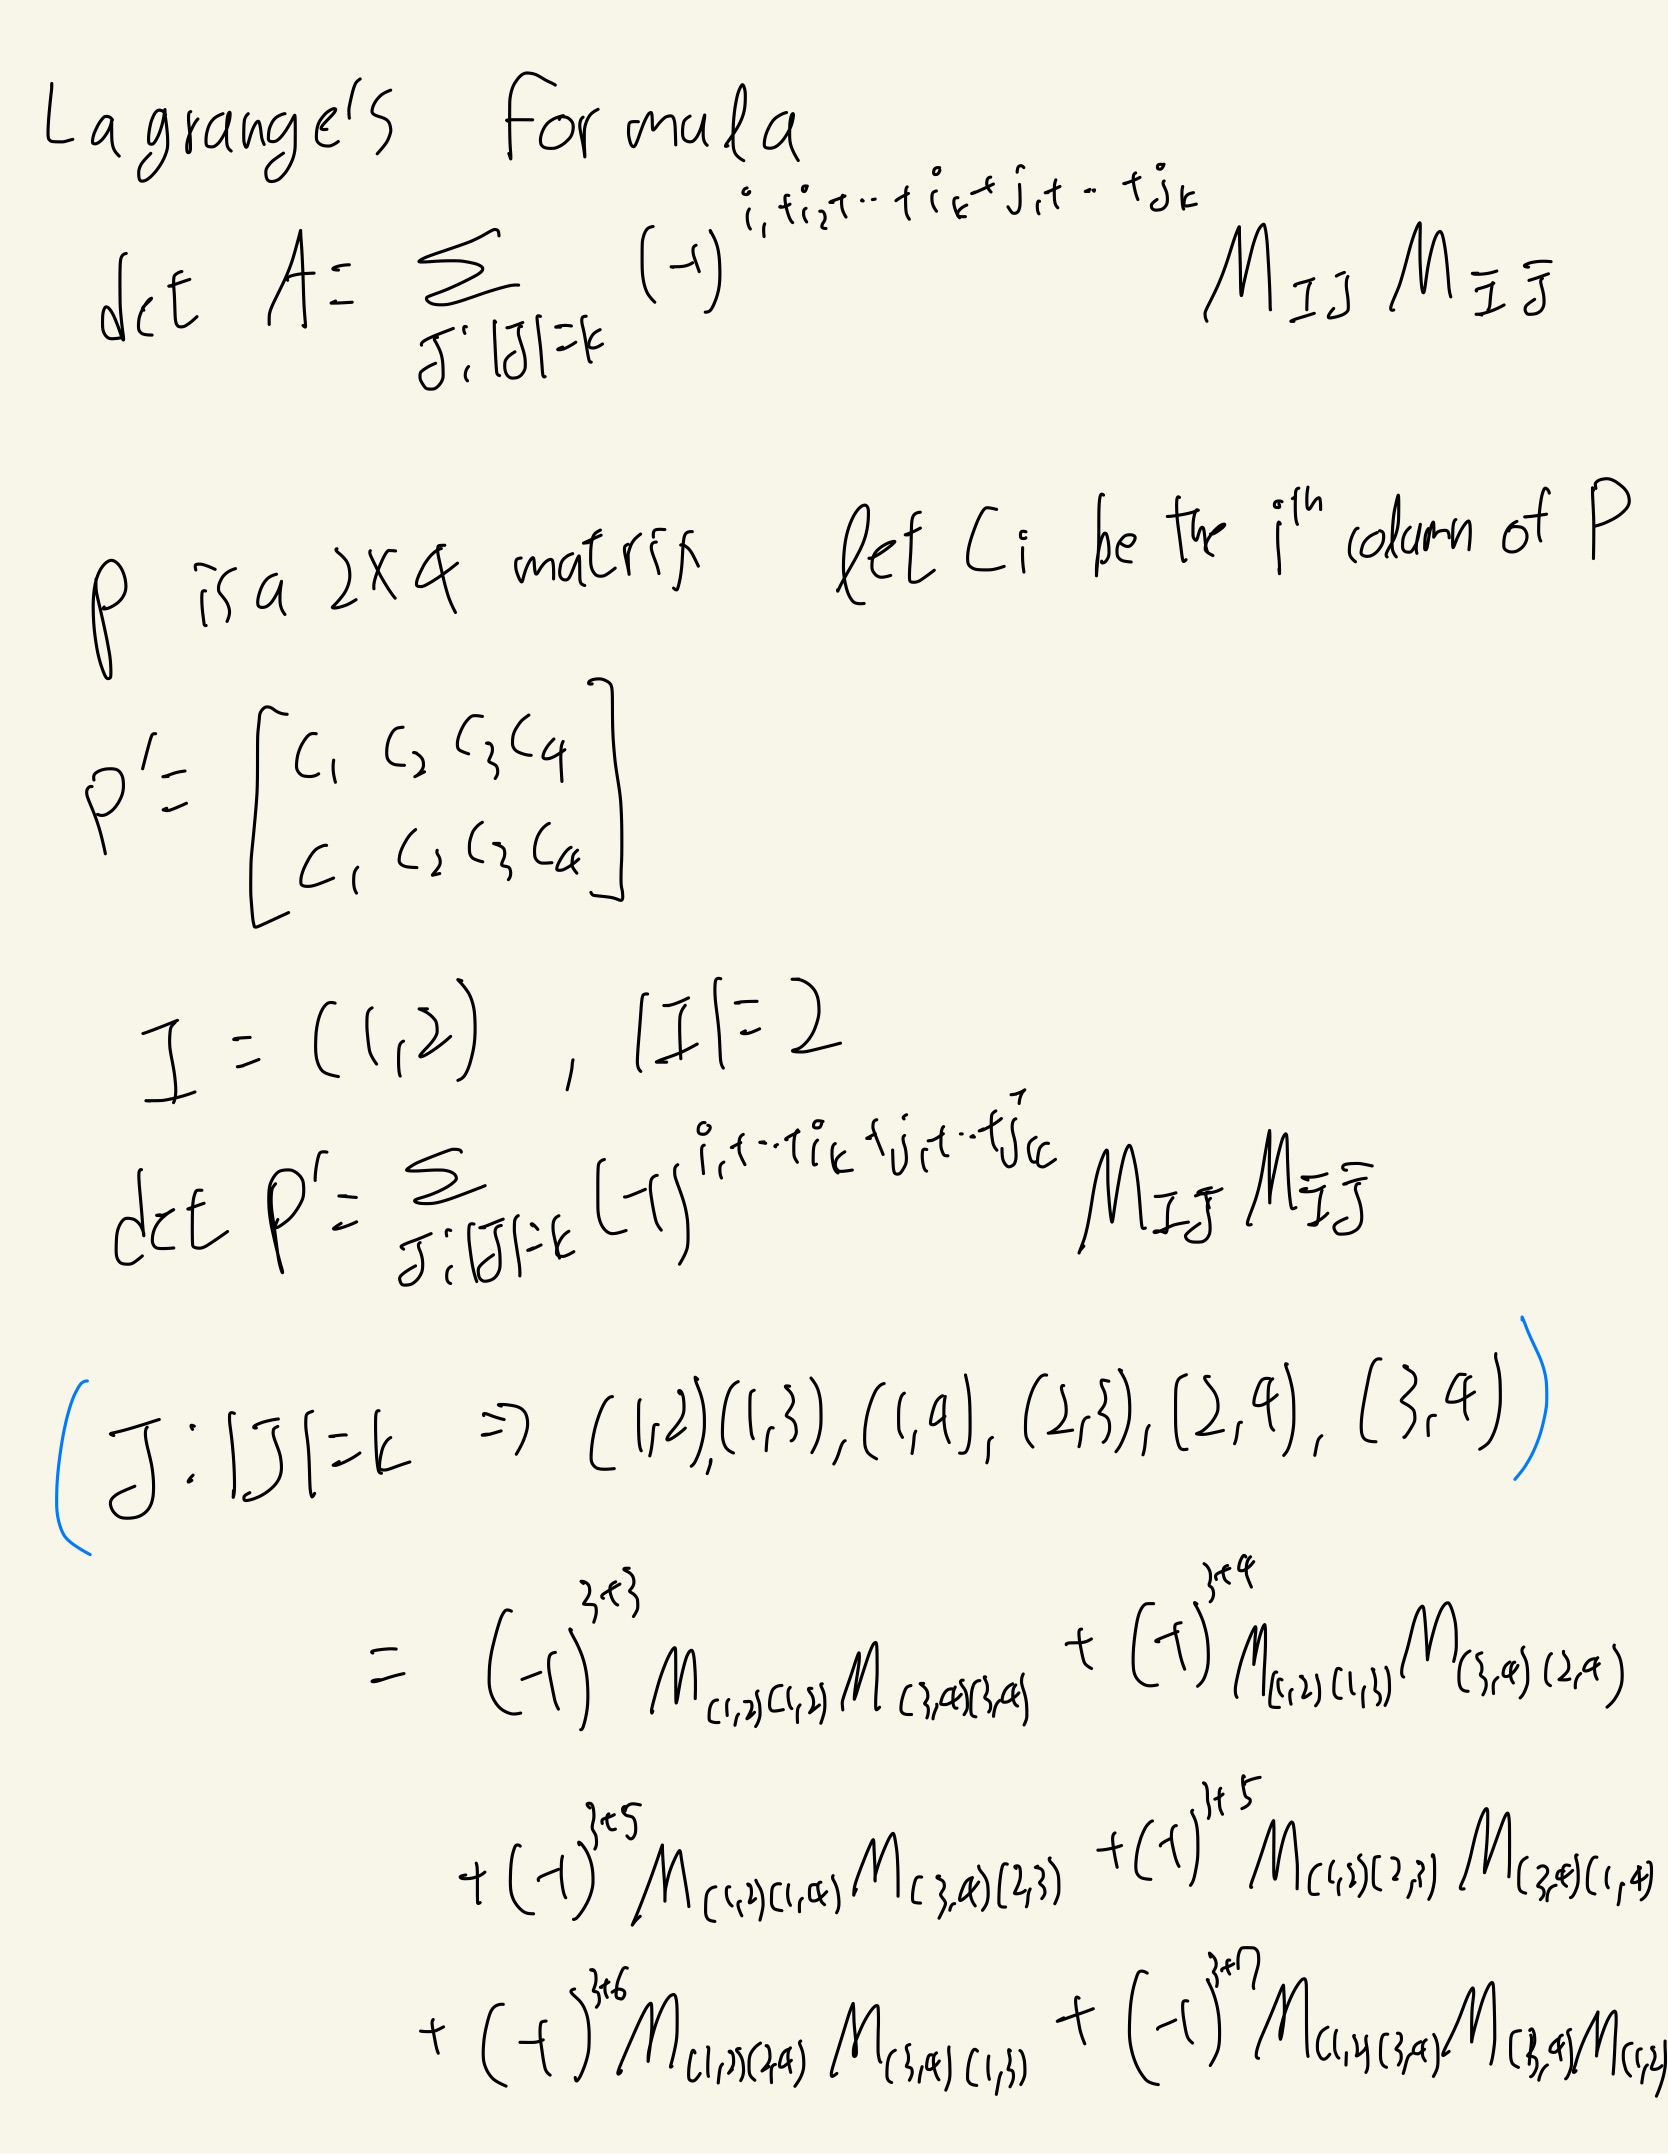 Lagrange's formula
det A = Σ_{J:|J|=k} (-1)^{i₁+i₂+··+i_k+j₁+··+j_k} M_{IJ} M_{Ī J̄}
P is a 2×4 matrix let Ci be the i^{th} column of P
P' = [C₁ C₂ C₃ C₄
C₁ C₂ C₃ C₄]
I = (1,2) , |I| = 2
det P' = Σ_{J:|J|=k} (-1)^{i₁+··+i_k+j₁+··+j_k} M_{IJ} M_{Ī J̄}
(J:|J|=k ⇒ (1,2),(1,3),(1,4),(2,3),(2,4),(3,4))
= (-1)^{3+3} M_{(1,2)(1,2)} M_{(3,4)(3,4)} + (-1)^{3+4} M_{(1,2)(1,3)} M_{(3,4)(2,4)}
+ (-1)^{3+5} M_{(1,2)(1,4)} M_{(3,4)(2,3)} + (-1)^{3+5} M_{(1,2)(2,3)} M_{(3,4)(1,4)}
+ (-1)^{3+6} M_{(1,2)(2,4)} M_{(3,4)(1,3)} + (-1)^{3+7} M_{(1,2)(3,4)} M_{(3,4)} M_{(1,2)}